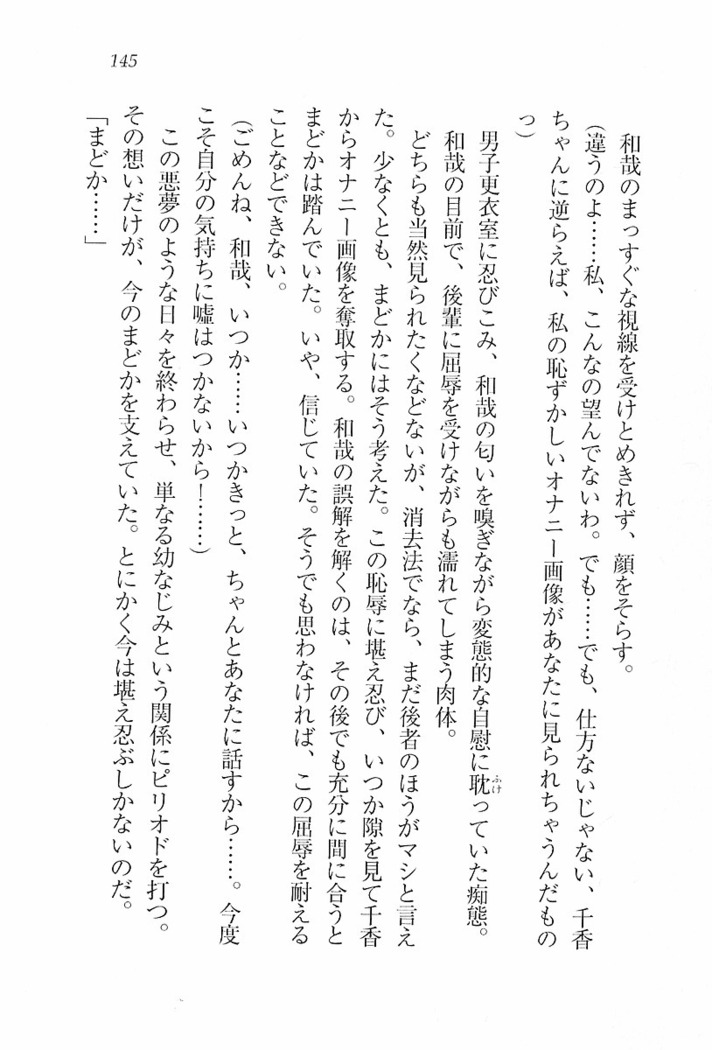 145
和哉のまっすぐな視線を受けとめきれず、顔をそらす。
(違うのよ……私、こんなの望んでないわ。でも……でも、仕方ないじゃない、千香
ちゃんに逆らえば、私の恥ずかしいオナニー画像があなたに見られちゃうんだもの
っ)
男子更衣室に忍びこみ、和哉の匂いを嗅ぎながら変態的な自慰に耽ふけっていた痴態。
和哉の目前で、後輩に屈辱を受けながらも濡れてしまう肉体。
どちらも当然見られたくなどないが、消去法でなら、まだ後者のほうがマシと言え
た。少なくとも、まどかにはそう考えた。この恥辱に堪え忍び、いつか隙を見て千香
からオナニー画像を奪取する。和哉の誤解を解くのは、その後でも充分に間に合うと
まどかは踏んでいた。いや、信じていた。そうでも思わなければ、この屈辱を耐える
ことなどできない。
(ごめんね、和哉、いつか……いつかきっと、ちゃんとあなたに話すから……。今度
こそ自分の気持ちに嘘はつかないから!……)
この悪夢のような日々を終わらせ、単なる幼なじみという関係にピリオドを打つ。
その想いだけが、今のまどかを支えていた。とにかく今は堪え忍ぶしかないのだ。
「まどか……」